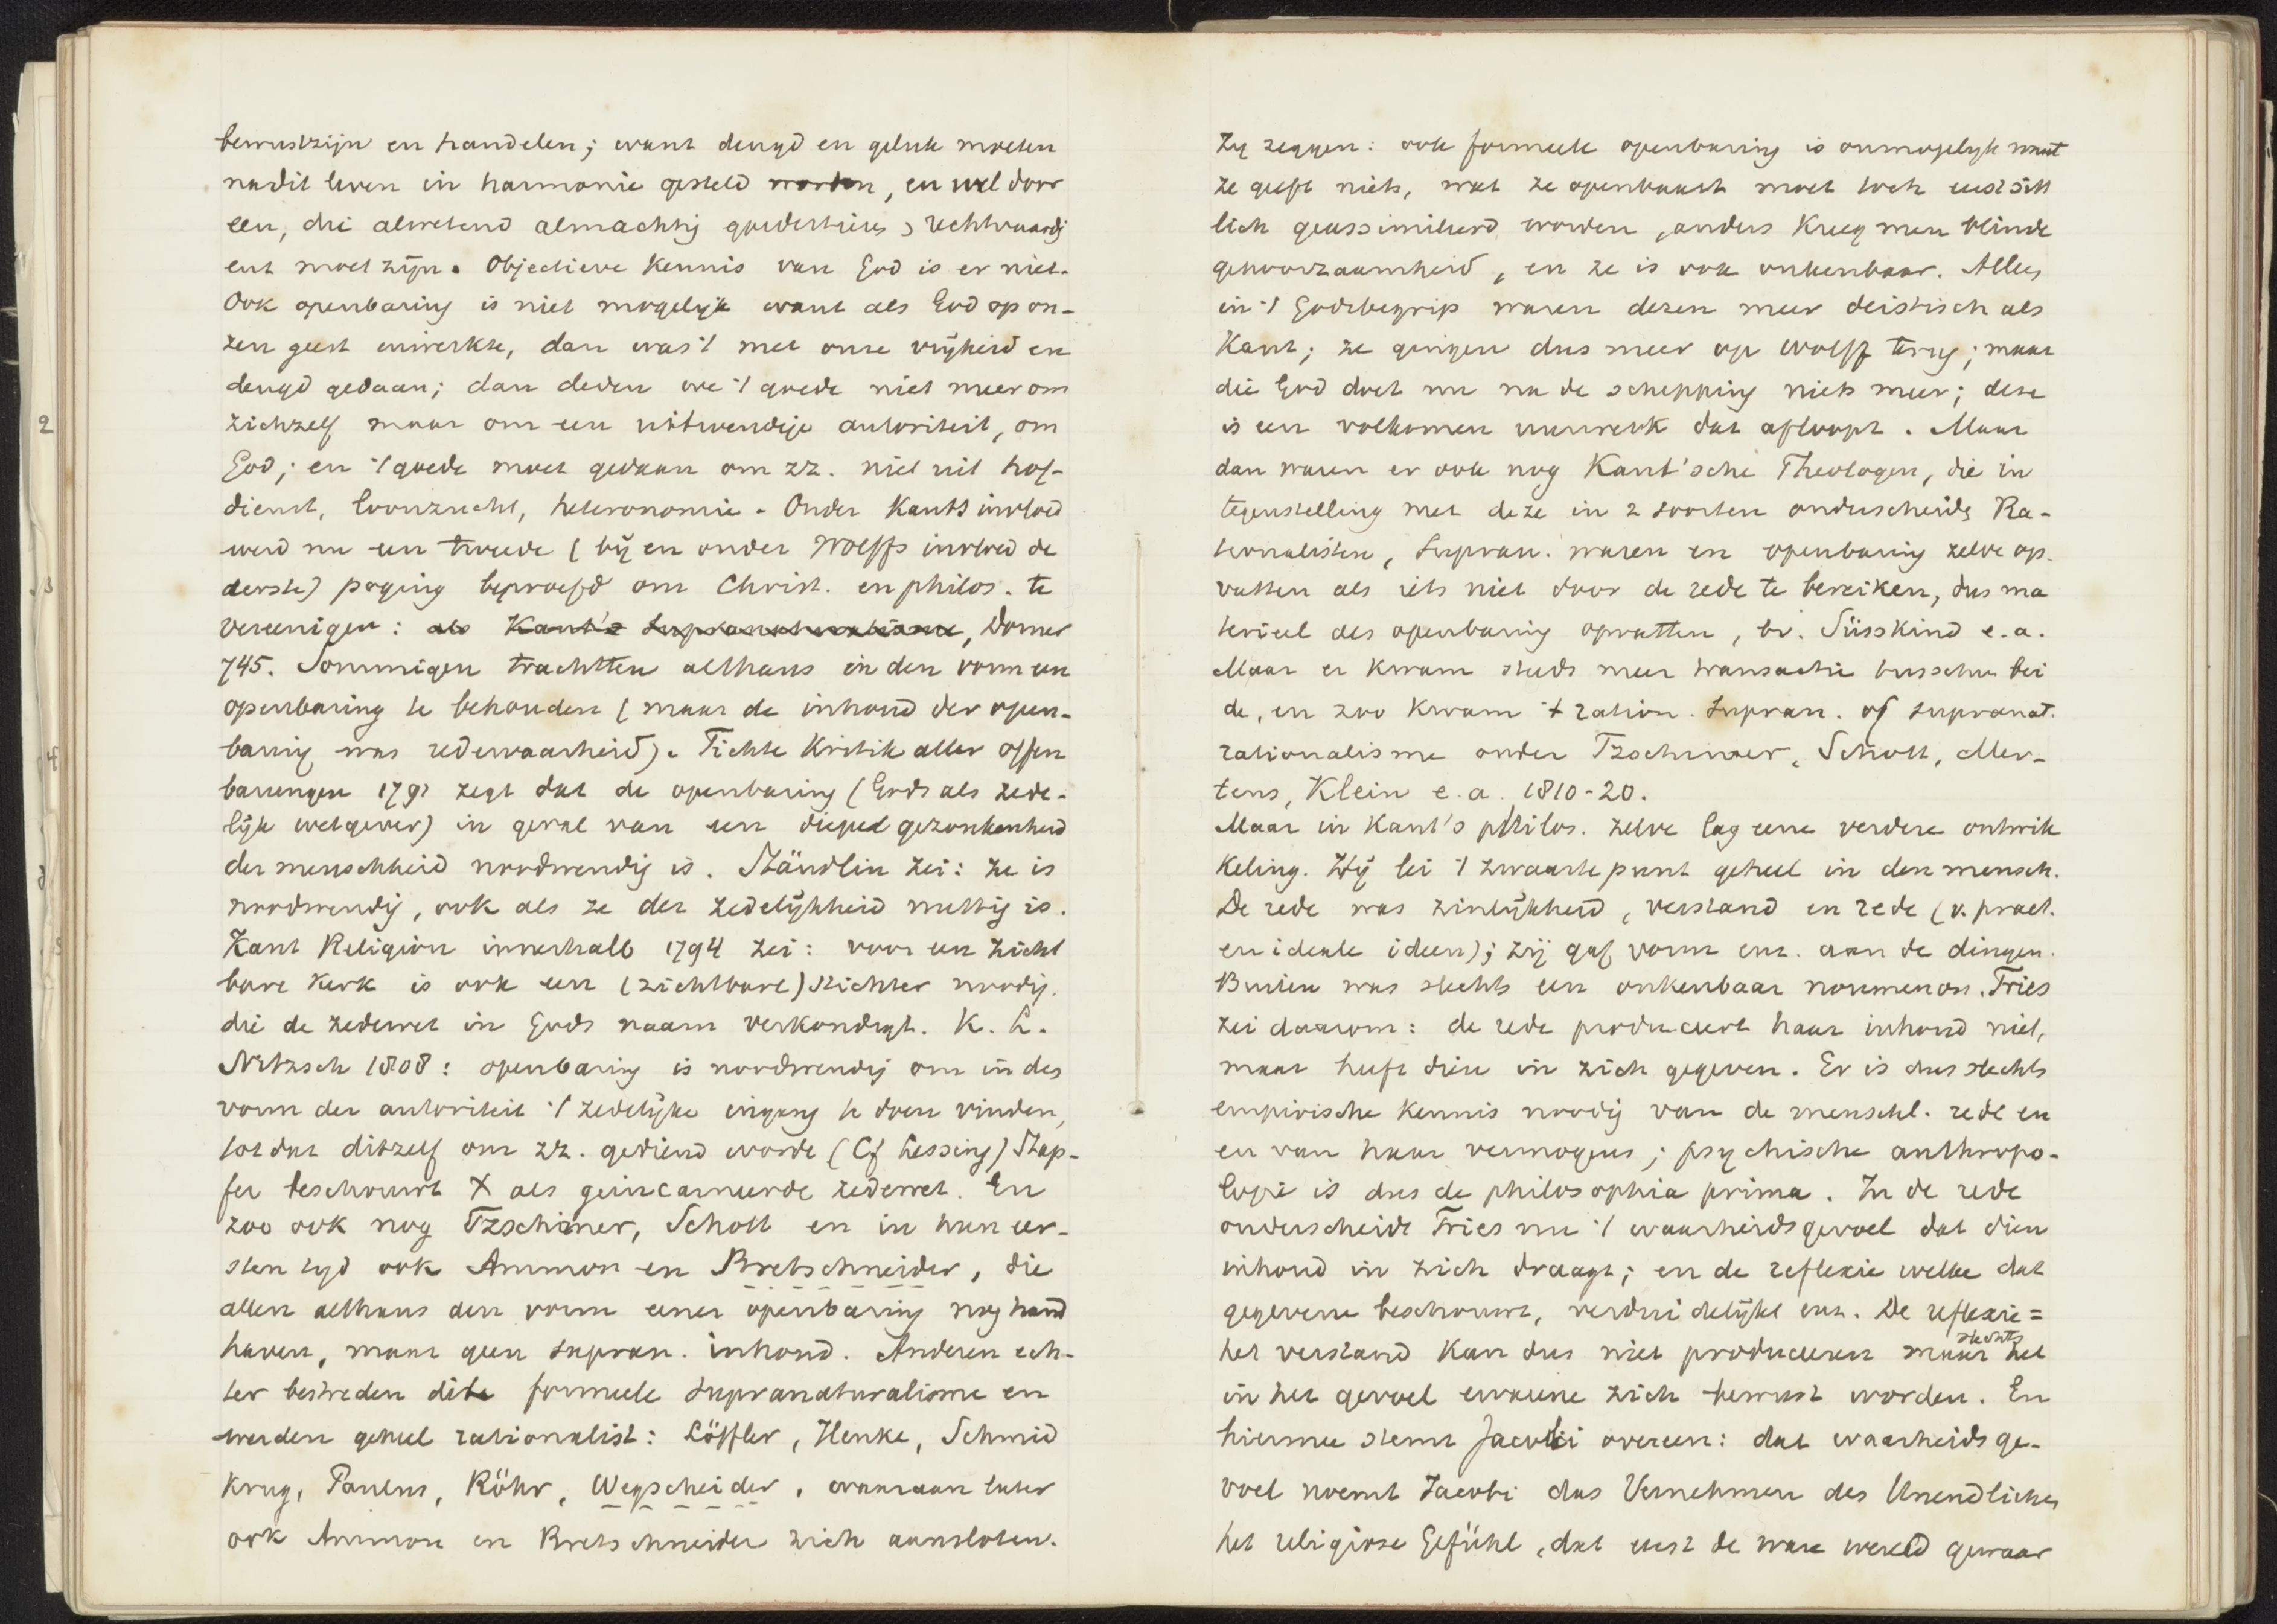 bewustzijn en handelen; want deugd en geluk moeten
nadit leven in harmonie gesteld worden, en wel door
een, die alwetend almachtig goedertieren, rechtvaardig
enz moet zijn. Objectieve kennis van God is er niet.
Ook openbaring is niet mogelijk want als God op on-
zen geest inwerkte, dan was 't met onze vrijheid en
deugd gedaan; dan deden we 't goede niet meer om
zichzelf maar om een uitwendige autoriteit, om
God; en 't goede moet gedaan om zz. niet uit hof-
dienst, loonzucht, heteronomie. Onder Kants invloed
werd nu een tweede (bij en onder Wolffs invloed de
derste) poging beproefd om Christ. en philos. te
vereenigen: als Kant's Supranaturalisme, Dorner
745. Sommigen trachtten althans in den vorm een
openbaring te behouden (maar de inhoud der open-
baring was redewaarheid). Fichte Kritik aller Offen
barungen 1791 zegt dat de openbaring (Gods als zede-
lijk wetgever) in geval van een dieped gezonkenheid
der menschheid noodwendig is. Stäudlin zei: ze is
noodwendig, ook als ze der zedelijkheid nuttig is.
Kant Religion innerhalb 1794 zei: voor een zicht
bare kerk is ook een (zichtbare) stichter noodig.
die de zedewet in Gods naam verkondigt. K. L.
Nitzsch 1808: openbaring is noodwendig om in des
vorm der autoriteit 't zedelijke ingang te doen vinden,
totdat ditzelf om zz. gediend worde (Cf Lessing) Stap-
fer beschouwt X als geincarneerde zedewet. En
zoo ook nog Tzschirner, Schott en in hun eer-
sten tijd ook Ammon en Bretschneider, die
allen althans den vorm eener openbaring nog hand
haven, maar geen supran. inhoud. Anderen ech-
ter bestreden dite formeele supranaturalisme en
werden geheel rationalist: Löffler, Henke, Schmid
Krug, Paulus, Röhr, Wegscheider, waaraan later
ook Ammon en Bretschneider zich aansloten.
Zij zeggen: ook formeele openbaring is onmogelijk want
ze geeft niets, wat ze openbaart moet toch eerst sitt
lich geassimileerd worden, anders kreeg men blinde
gehoorzaamheid, en ze is ook onkenbaar. Alles
in 't Godsbegrip waren dezen meer deistisch als
Kant; ze gingen dus meer op Wolff terug; maar
die God doet nu na de schepping niets meer; deze
is een volkomen uurwerk dat afloopt. Maar
dan waren er ook nog Kant'sche Theologen, die in
tegenstelling met deze in 2 soorten onderscheide Ra-
tionalisten, Supran. waren en openbaring zelve op.
vatten als iets niet door de rede te bereiken, dus ma
terieel des openbaring opvatten, bv. Süsskind e.a.
Maar er kwam steeds meer transactie tusschen bei
de, en zoo kwam 't ration. Supran. of supranat.
rationalisme onder Tzschirner, Schott, Mer-
tens, Klein e.a. 1810-20.
Maar in Kant's philos. zelve lag eene verdere ontwik
keling. Hij lei 't zwaartepunt geheel in den mensch.
De rede was zinlijkheid, verstand en rede (v. pract.
en ideale ideen); zij gaf vorm enz. aan de dingen.
Buiten was slechts een onkenbaar noumenon. Fries
zei daarom: de rede produceert haar inhoud niet,
maar heeft dien in zich gegeven. Er is dus slechts
empirische kennis noodig van de menschl. rede en
en van haar vermogens; psychische anthropo-
logie is dus de philosophia prima. In de rede
onderscheidt Fries nu 't waarheidsgevoel dat dien
inhoud in zich draagt; en de reflexie welke dat
gegevene beschouwt, verduidelijkt enz. De reflexie =
het verstand kan dus niet produceeren maar slechts het
in het gevoel zich bewust worden. En
hiermee stemt Jacobi overeen: dat waarheidsge-
voel noemt Jacobi das Vernehmen des Unendlichen
het religiöse Gefühl, dat eerst de ware wereld gewaar